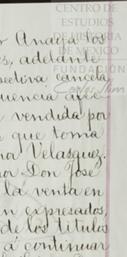 CENTRO DE
ESTUDIOS
DE HISTORIA
DE MEXICO
FUNDACIÓN
Carlos Slim
Anaya los
adelante
cancela
vendida por
que toma
Velasquez.
Don José
la venta en
expresados,
de los titulos
á continuar